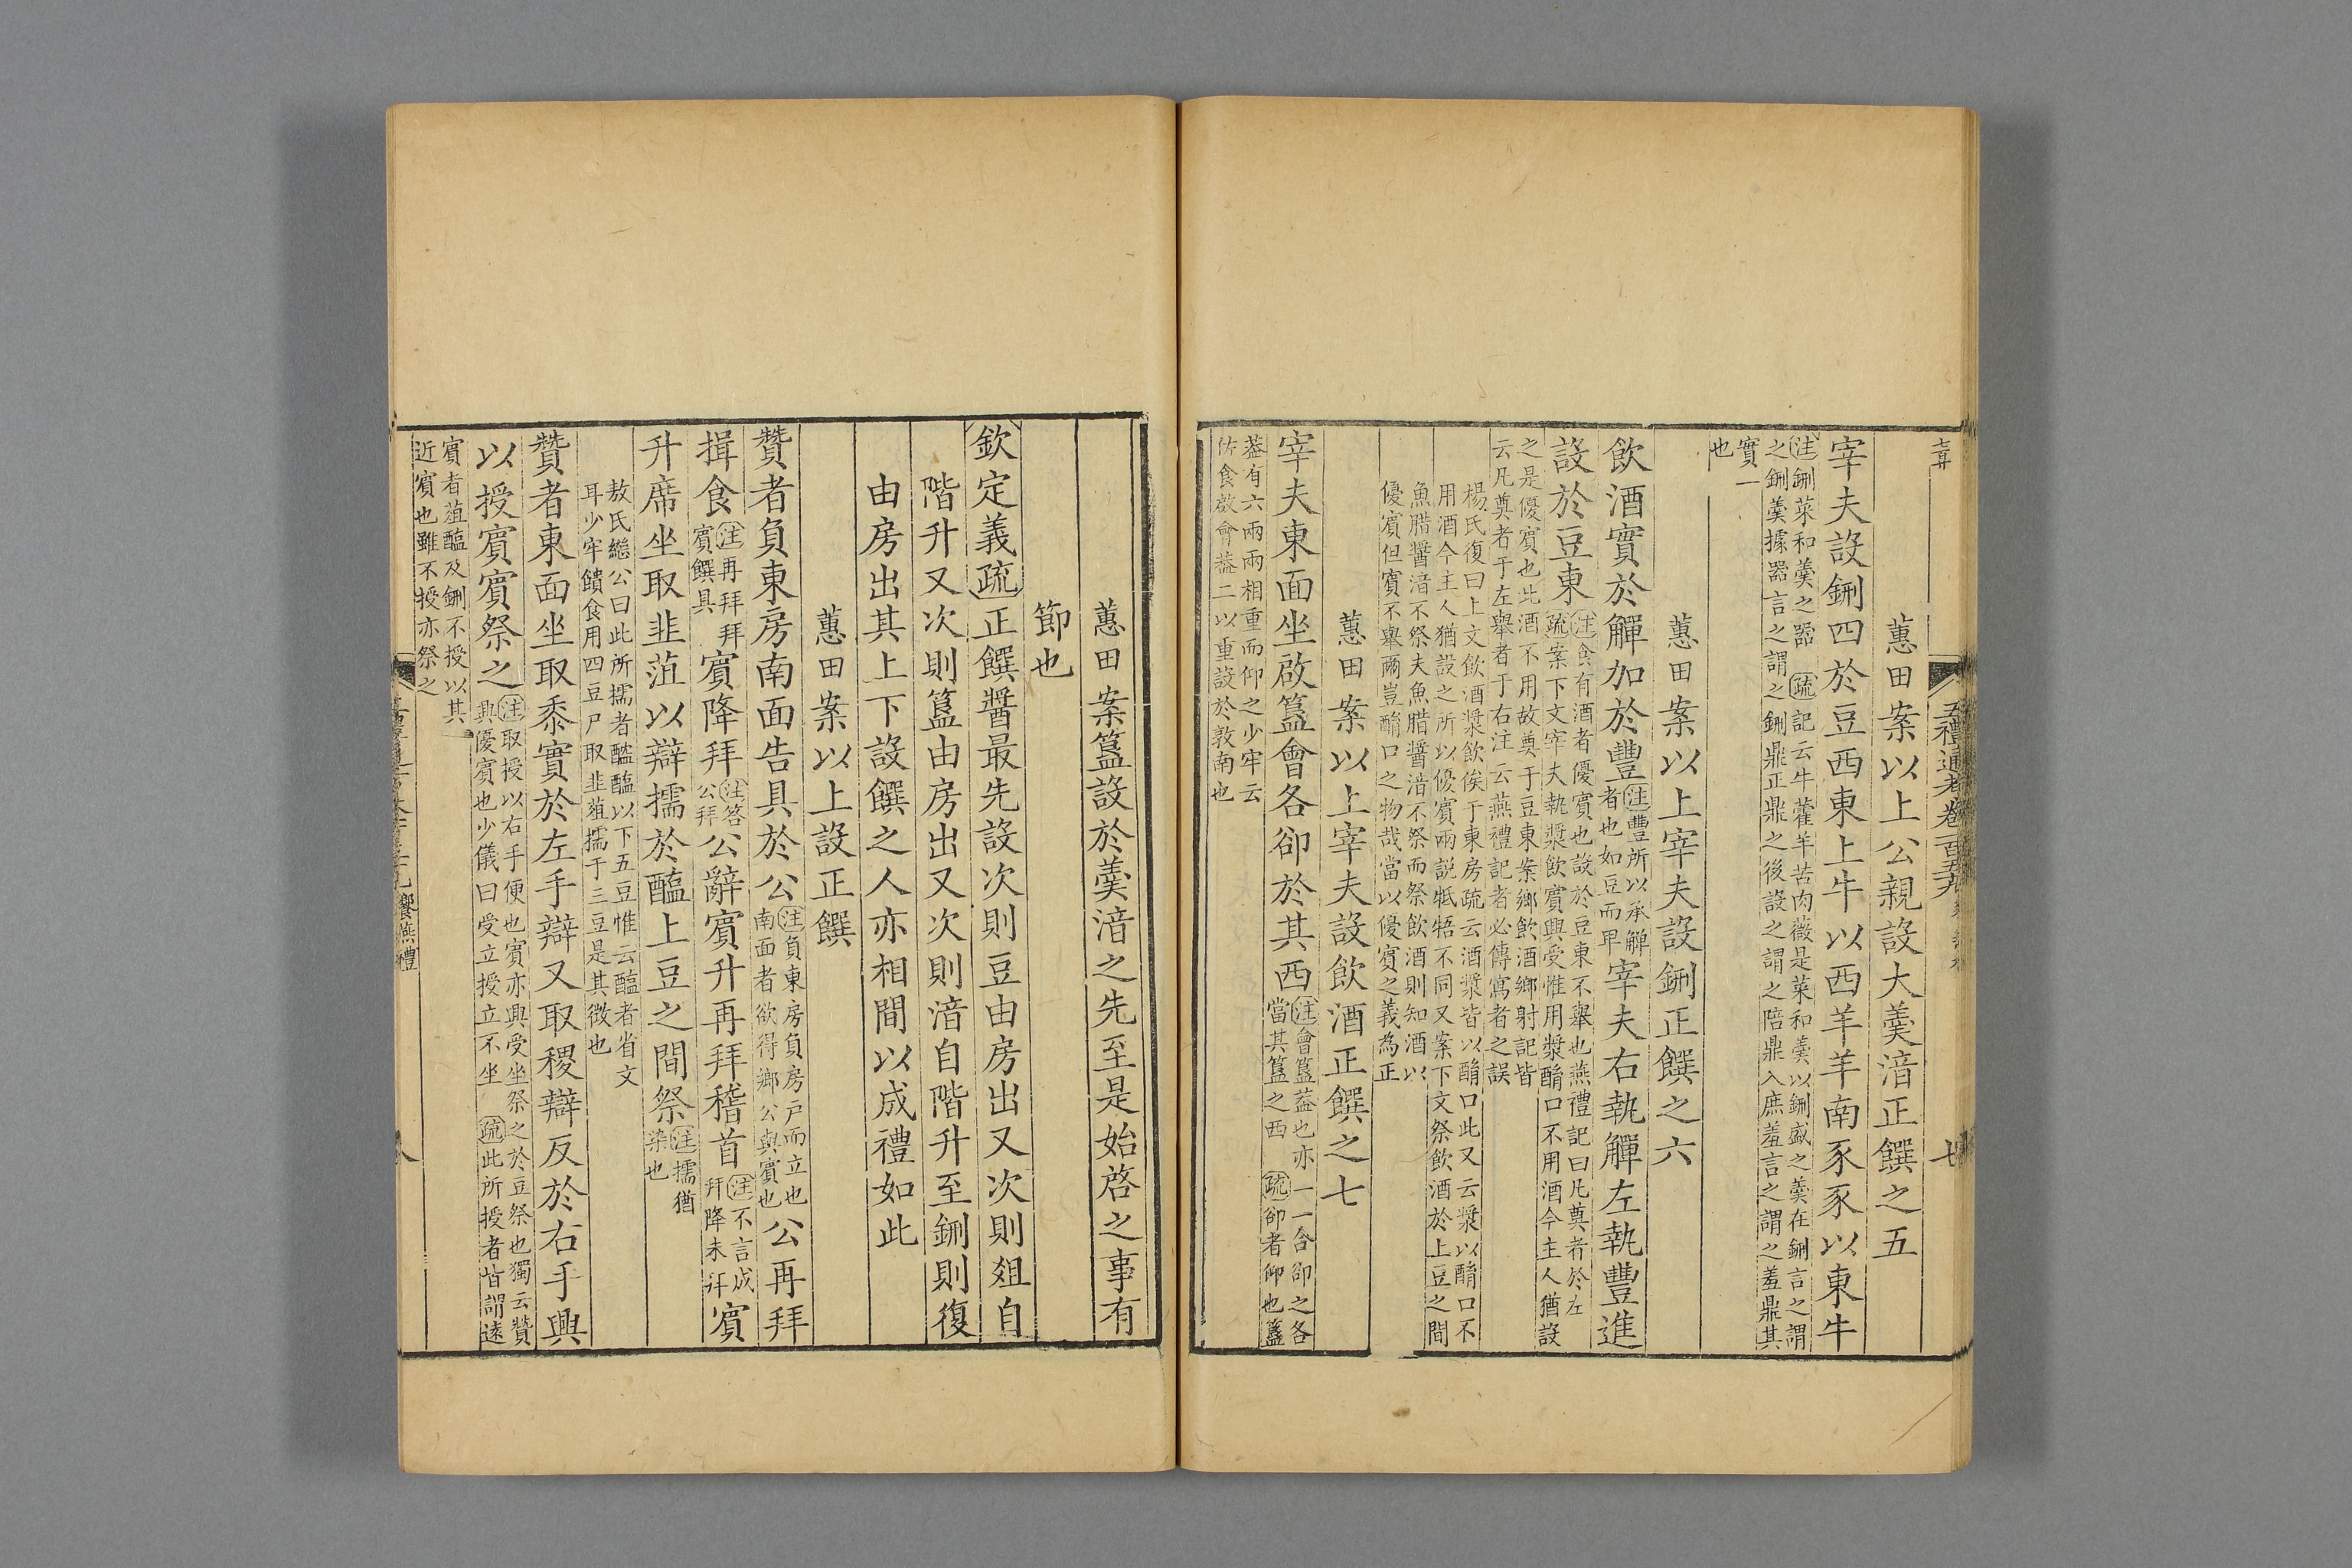 五禮通考卷一百五十九
七
蕙田案以上公親設大羹湆正饌之五
宰夫設鉶四於豆西東上牛以西羊羊南豕豕以東牛
注鉶菜和羹之器 疏記云牛藿羊苦肉薇是菜和羹以鉶盛之羹在鉶言之謂
之鉶羹據器言之謂之鉶鼎正鼎之後設之謂之陪鼎入庶羞言之謂之羞鼎其
實一
也
蕙田案以上宰夫設鉶正饌之六
飲酒實於觶加於豐注豐所以承觶者也如豆而卑宰夫右執觶左執豐進
設於豆東注食有酒者優賓也設於豆東不舉也燕禮記曰凡奠者於左 疏案下文宰夫執漿飲賓興受惟用漿酳口不用酒今主人猶設
之是優賓也此酒不用故奠于豆東案鄉飲酒鄉射記皆
云凡奠者于左舉者于右注云燕禮記者必傳寫者之誤
楊氏復曰上文飲酒漿飲俟于東房疏云酒漿皆以酳口此又云漿以酳口不
用酒今主人猶設之所以優賓兩説牴牾不同又案下文祭飲酒於上豆之間
魚腊醬湆不祭夫魚腊醬湆不祭而祭飲酒則知酒以
優賓但賓不舉爾豈酳口之物哉當以優賓之義為正
蕙田案以上宰夫設飲酒正饌之七
宰夫東面坐啟簋會各卻於其西注會簋葢也亦一一合卻之各當其簋之西 疏卻者仰也簋
葢有六兩兩相重而仰之少牢云
佐食啟會葢二以重設於敦南也
蕙田案簋設於羹湆之先至是始啓之事有
節也
欽定義疏正饌醬最先設次則豆由房出又次則俎自
階升又次則簋由房出又次則湆自階升至鉶則復
由房出其上下設饌之人亦相間以成禮如此
蕙田案以上設正饌
贊者負東房南面告具於公注負東房負房戸而立也南面者欲得鄉公與賓也公再拜
揖食注再拜拜賓饌具賓降拜注答公拜公辭賓升再拜稽首注不言成拜降未拜賓
升席坐取韭菹以辯擩於醢上豆之間祭注擩猶染也
敖氏繼公曰此所擩者醓醢以下五豆惟云醢者省文
耳少牢饋食用四豆尸取韭菹擩于三豆是其徵也
贊者東面坐取黍實於左手辯又取稷辯反於右手興
以授賓賓祭之注取授以右手便也賓亦興受坐祭之於豆祭也獨云贊興優賓也少儀曰受立授立不坐 疏此所授者皆謂遠
賓者菹醢及鉶不授以其
近賓也雖不授亦祭之
饗燕禮
八